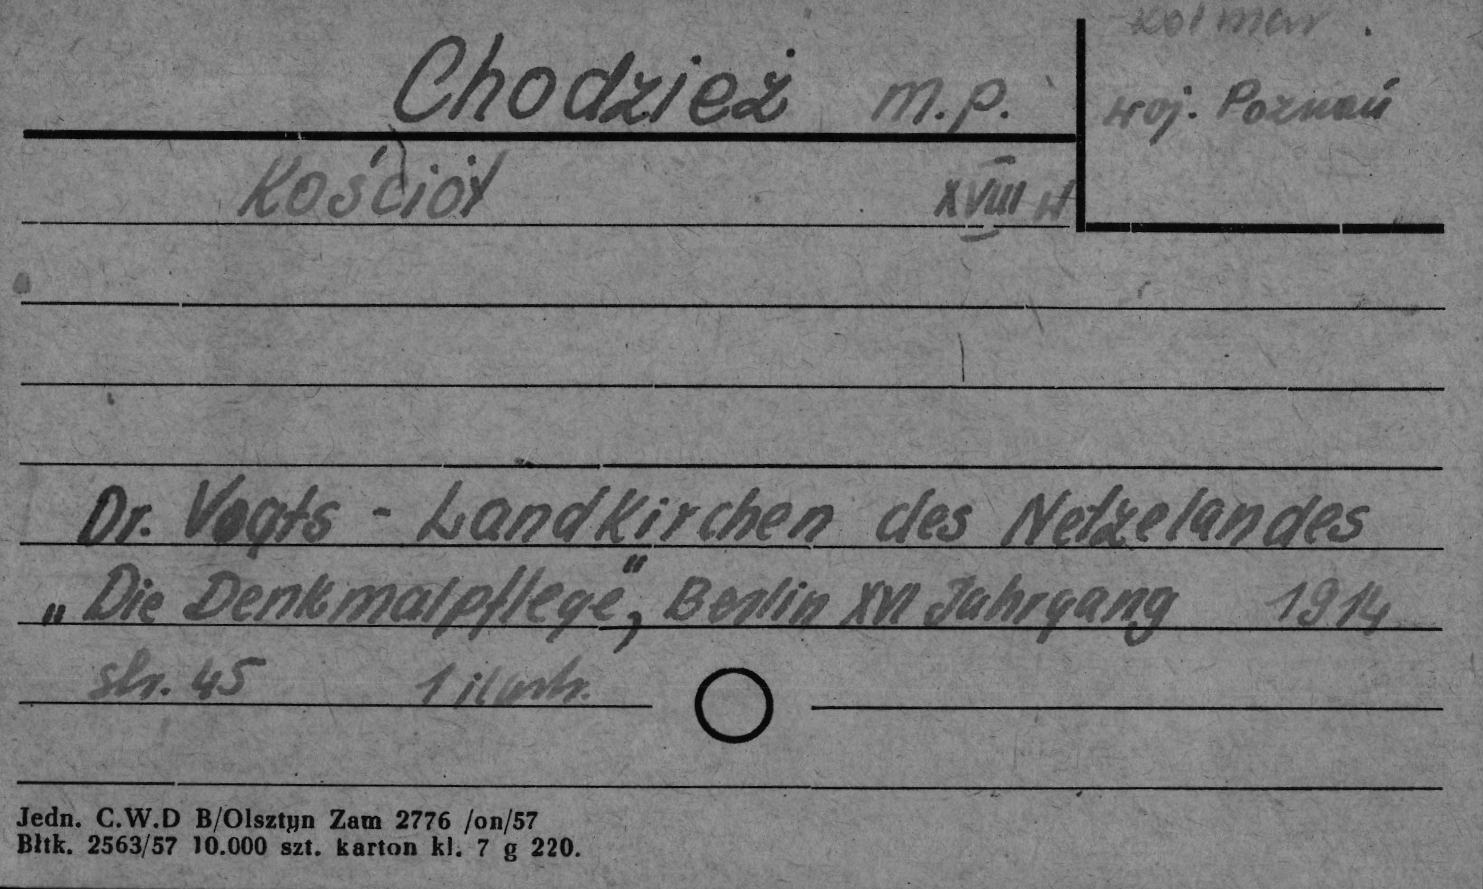 Kolmar
Chodzież m.p.
woj. Poznań
Kościół XVIII w
Dr. Vogts - Landkirchen des Netzelandes
„Die Denkmalpflege", Berlin XVI Jahrgang 1914
str. 45 1 ilustr.
Jedn. C.W.D B/Olsztyn Zam 2776 /on/57
Błtk. 2563/57 10.000 szt. karton kl. 7 g 220.